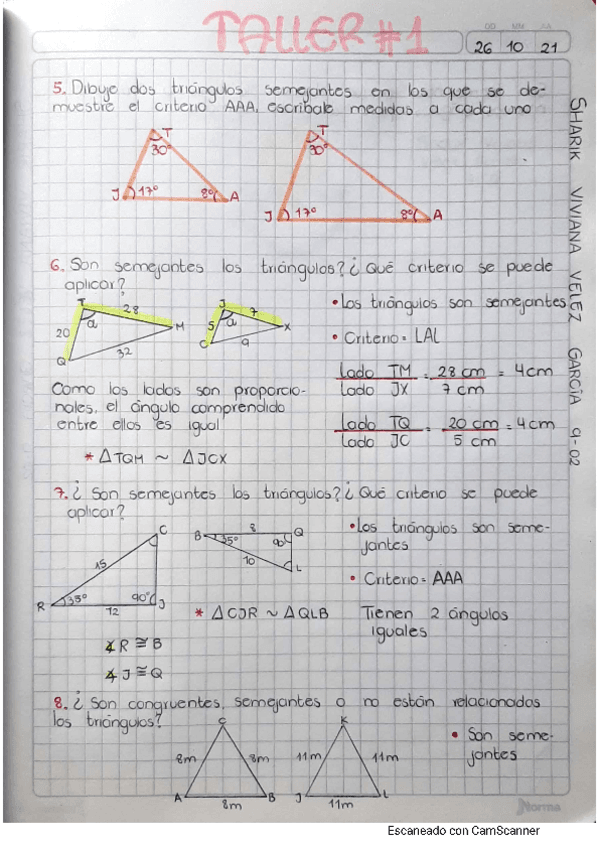 TALLER #1
DD MM AA
26 10 21
SHARIK VIVIANA VELEZ GARCÍA 9-02
5. Dibuje dos triángulos semejantes en los que se de-
muestre el criterio AAA, escribale medidas a cada uno
T T
30° 30°
J 17° 8° A J 17° 8° A
6. Son semejantes los triángulos? ¿Qué criterio se puede
aplicar?
T 28 J 7
20 a M 5 a X
Q 32 C 9
• Los triángulos son semejantes
• Criterio = LAL
lado TM = 28 cm = 4cm
lado JX 7 cm
lado TQ = 20 cm = 4cm
lado JC 5 cm
Como los lados son proporcio-
nales, el ángulo comprendido
entre ellos es igual
* △TQM ~ △JCX
7. ¿Son semejantes los triángulos? ¿Qué criterio se puede
aplicar?
C
15
R 35° 90° J
12
B 8 Q
35° 90°
10 L
• Los triángulos son seme-
jantes
• Criterio = AAA
* △CJR ~ △QLB
Tienen 2 ángulos
iguales
∡ R ≅ B
∡ J ≅ Q
8. ¿Son congruentes, semejantes o no están relacionados
los triángulos?
C K
8m 8m 11m 11m
A B J L
8m 11m
• Son seme-
jantes
Norma
Escaneado con CamScanner